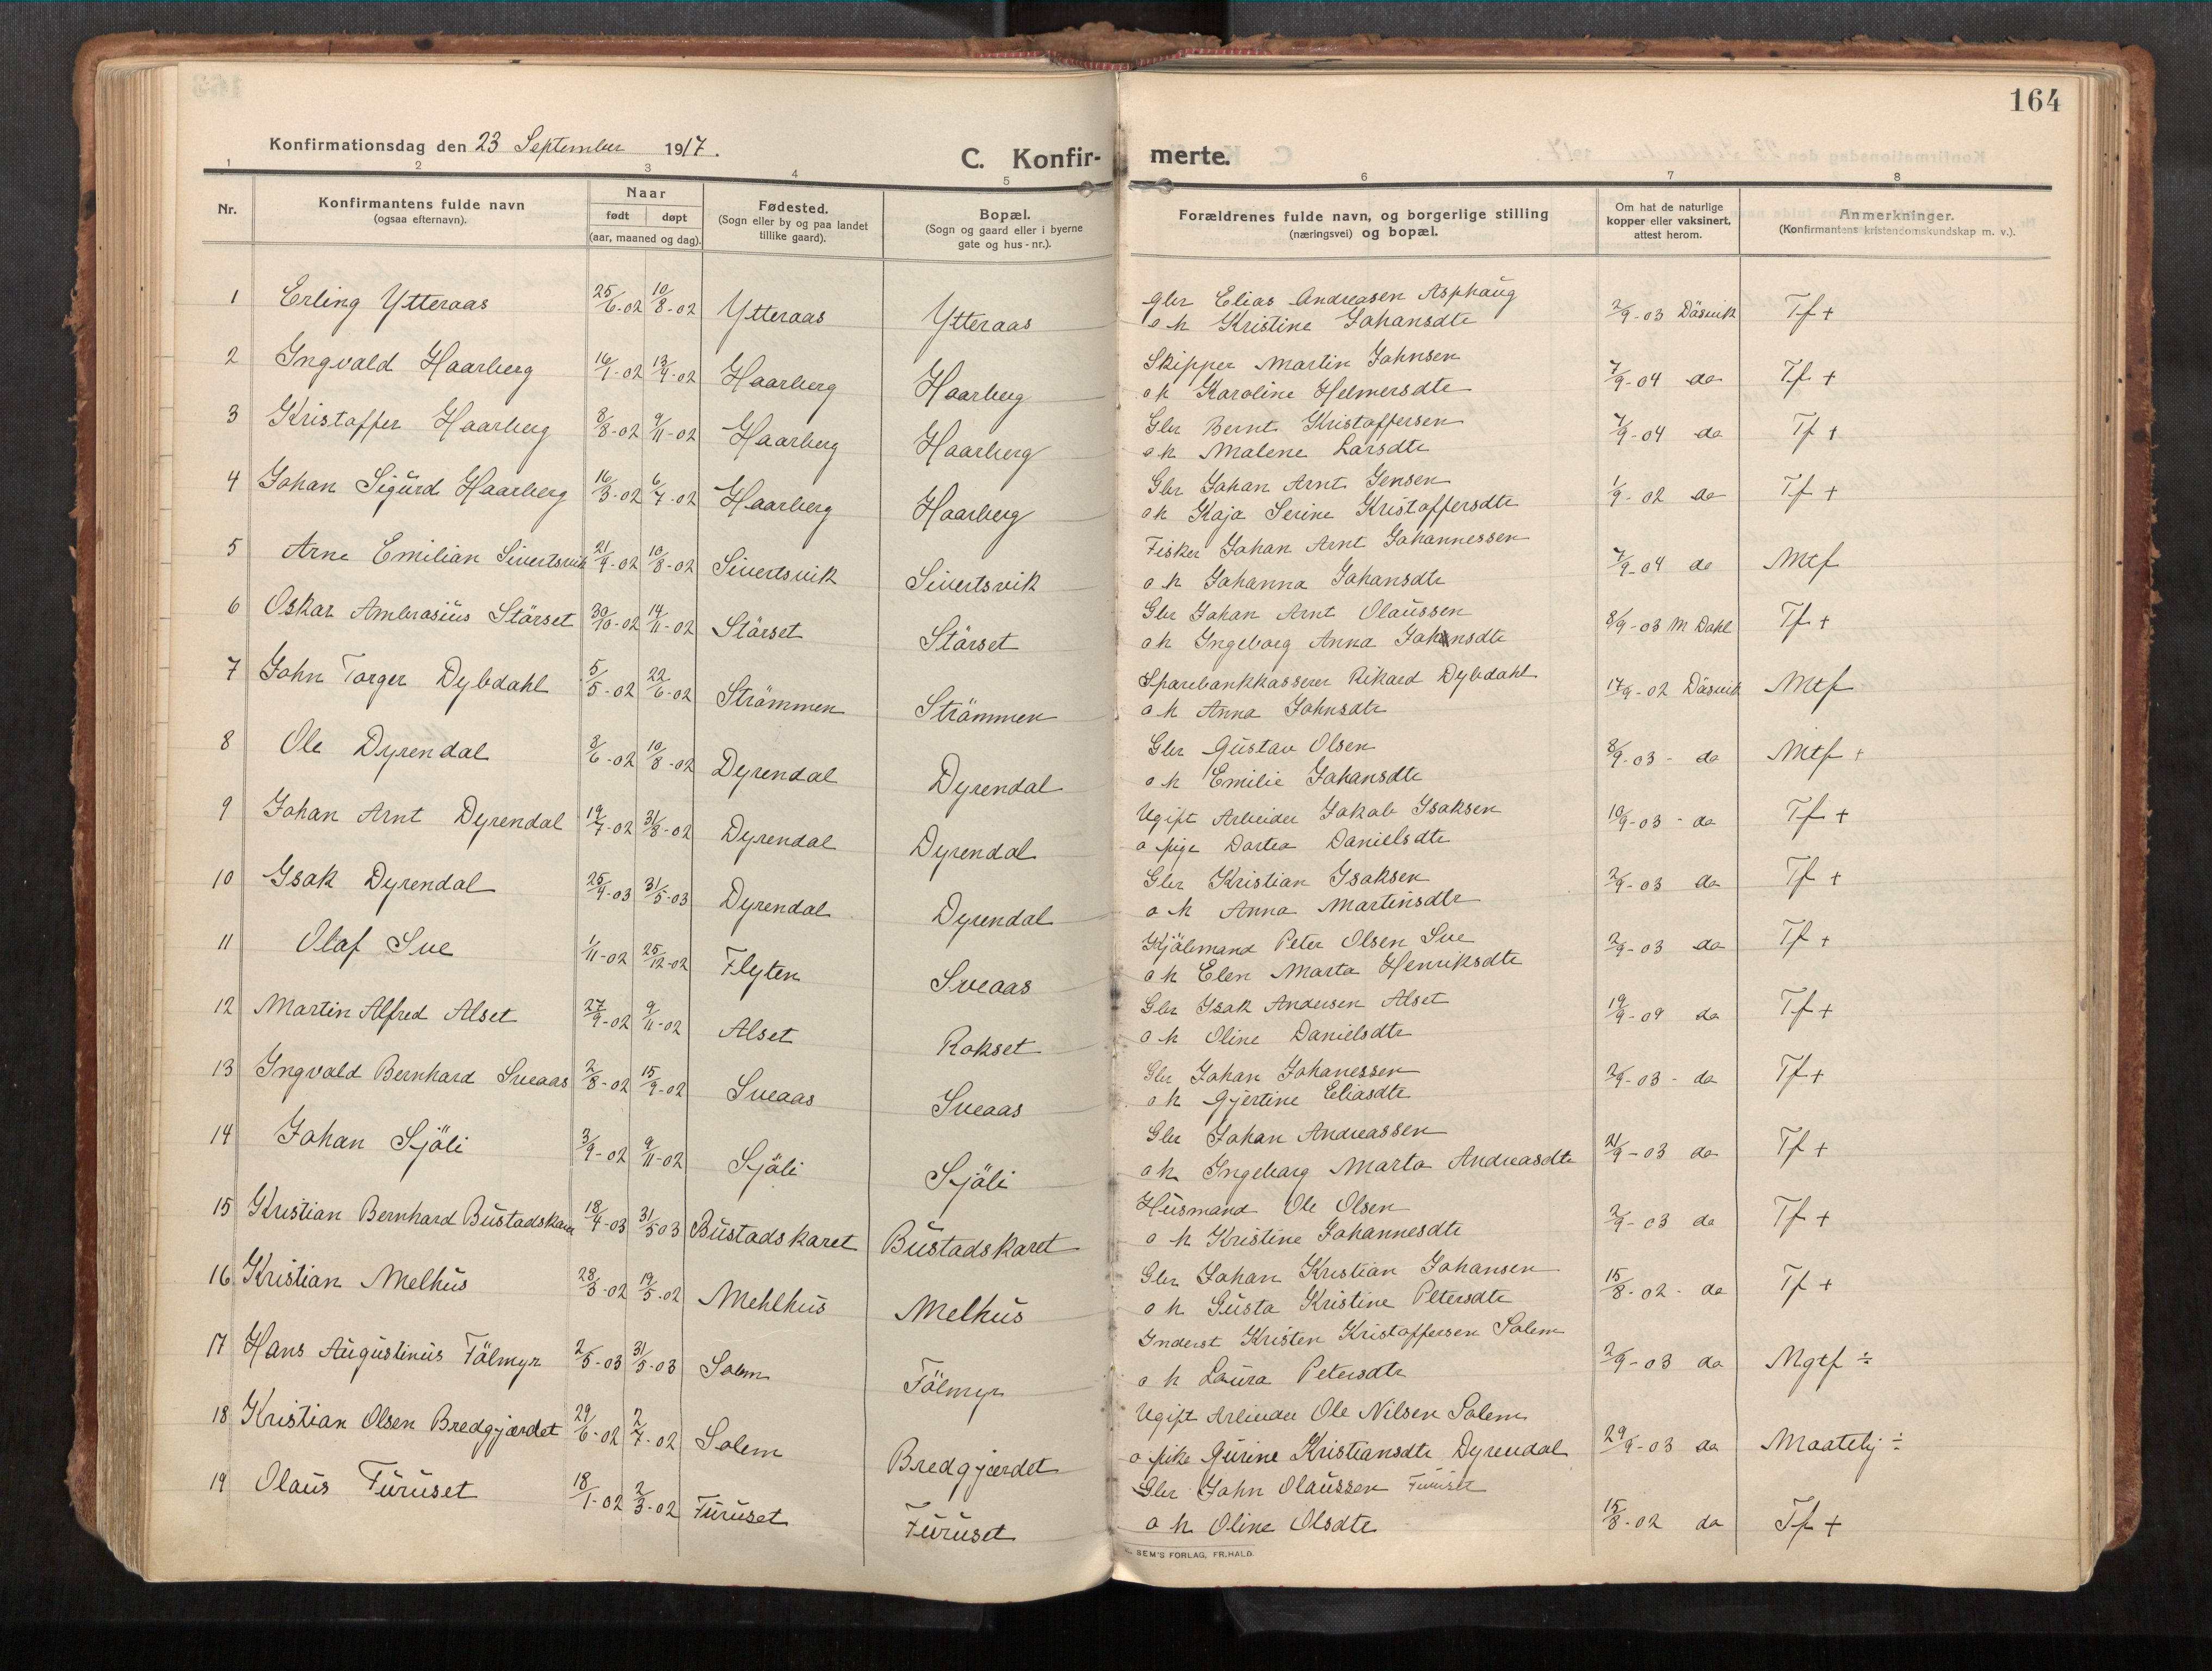 164
Konfirmationsdag den 23 September 1917.
C. Konfir- merte.
1 2 3 4 5 6 7 8
Nr.
Konfirmantens fulde navn
(ogsaa efternavn).
Naar
født døpt
(aar, maaned og dag).
Fødested.
(Sogn eller by og paa landet
tillike gaard).
Bopæl.
(Sogn og gaard eller i byerne
gate og hus-nr.).
Forældrenes fulde navn, og borgerlige stilling
(næringsvei) og bopæl.
Om hat de naturlige
kopper eller vaksinert,
attest herom.
Anmerkninger.
(Konfirmantens kristendomskundskap m. v.).
1 Erling Ytteraas 25/6-02 10/8-02 Ytteraas Ytteraas
Gbr Elias Andreasen Asphaug
o h Kristine Johansdtr 2/9-03 Däsvik Tf +
2 Ingvald Haarberg 16/1-02 13/4-02 Haarberg Haarberg
Skipper Martin Johnsen
o h Karoline Helmersdtr 7/9-04 do Tf +
3 Kristoffer Haarberg 8/8-02 9/11-02 Haarberg Haarberg
Gbr Bernt Kristoffersen
o h Malene Larsdtr 7/9-04 do Tf +
4 Johan Sigurd Haarberg 16/3-02 6/7-02 Haarberg Haarberg
Gbr Johan Arnt Jensen
o h Kaja Serine Kristoffersdtr 1/9-02 do Tf +
5 Arne Emilian Sivertsvik 21/4-02 10/8-02 Sivertsvik Sivertsvik
Fisker Johan Arnt Johannessen
o h Johanna Johansdtr 7/9-04 do Mtf
6 Oskar Ambrosius Störset 30/10-02 14/11-02 Störset Störset
Gbr Johan Arnt Olaussen
o h Ingeborg Anna Johnsdtr 8/9-03 M Dahl Tf +
7 John Torger Dybdahl 5/5-02 22/6-02 Strömmen Strömmen
Sparebankkasserer Rikard Dybdahl
o h Anna Johnsdtr 17/9-02 Däsvik Mtf
8 Ole Dyrendal 3/6-02 10/8-02 Dyrendal Dyrendal
Gbr Gustav Olsen
o h Emilie Johansdtr 8/9-03 - do Mtf +
9 Johan Arnt Dyrendal 19/7-02 31/8-02 Dyrendal Dyrendal
Ugift Arbeider Jakob Isaksen
o pige Dortea Danielsdtr 10/9-03 - do Tf +
10 Isak Dyrendal 25/4-03 31/5-03 Dyrendal Dyrendal
Gbr Kristian Isaksen
o h Anna Martinsdtr 2/9-03 do Tf +
11 Olaf Sve 1/11-02 25/12-02 Flyten Sveaas
Kjölemand Peter Olsen Sve
o h Elen Marta Henriksdtr 2/9-03 do Tf +
12 Martin Alfred Alset 27/9-02 9/11-02 Alset Rokset
Gbr Isak Andersen Alset
o h Oline Danielsdtr 19/9-09 do Tf +
13 Ingvald Bernhard Sveaas 2/8-02 15/9-02 Sveaas Sveaas
Gbr Johan Johanessen
o h Gjertine Eliasdtr 2/9-03 - do Tf +
14 Johan Sjöli 3/9-02 9/11-02 Sjöli Sjöli
Gbr Johan Andreassen
o h Ingeborg Marta Andreasdtr 21/9-03 do Tf +
15 Kristian Bernhard Bustadskaret 18/4-03 31/5 03 Bustadskaret Bustadskaret
Husmand Ole Olsen
o h Kristine Johannesdtr 2/9-03 do Tf +
16 Kristian Melhus 28/3-02 19/5-02 Mehlhus Melhus
Gbr Johan Kristian Johansen
o h Gusta Kristine Petersdtr 15/8-02 - do Tf +
17 Hans Augustinus Fölmyr 2/5-03 31/5-03 Solem Fölmyr
Inderst Kristen Kristoffersen Solem
o h Laura Petersdtr 2/9-03 do Mgtf ÷
18 Kristian Olsen Bredgjærdet 29/6-02 2/7-02 Solem Bredgjærdet
Ugift Arbeider Ole Nilsen Solem
o pike Gurine Kristiansdtr Dyrendal 29/9-03 do Maatelij ÷
19 Olaus Furuset 18/1-02 2/3-02 Furuset Furuset
Gbr John Olaussen Furuset
o h Oline Olsdtr 15/8-02 do Tf +
SEM'S FORLAG, FR.HALD.